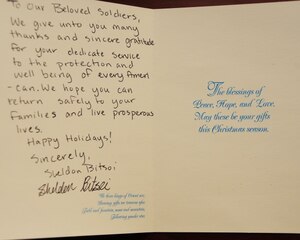 To Our Beloved Soldiers,
We give unto you many
thanks and sincere gratitude
for your dedicate service
to the protection and
well being of every Ameri
-can. We hope you can
return safely to your
Families and live prosperous
lives.
Happy Holidays!
Sincerely,
Sheldon Bitsoi
Sheldon Bitsoi
The blessings of
Peace, Hope, and Love.
May these be your gifts
this Christmas season.